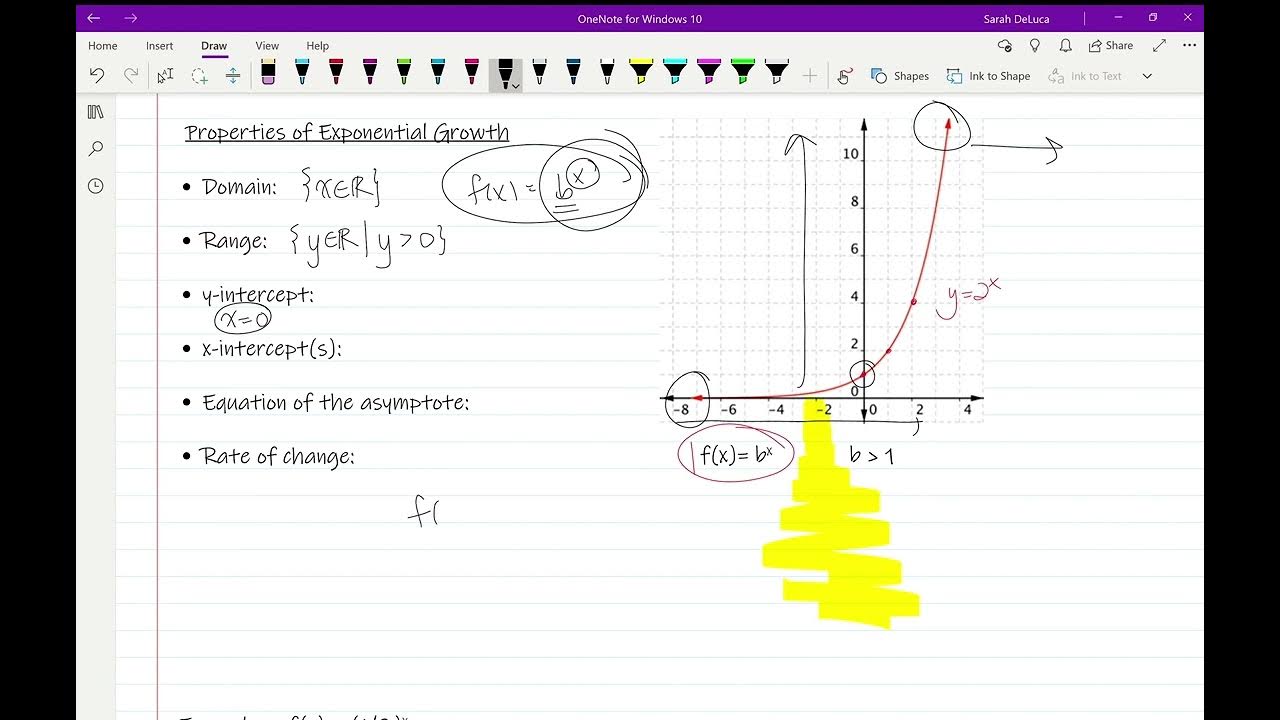 OneNote for Windows 10
Sarah DeLuca
Home Insert Draw View Help
Share
Shapes Ink to Shape Ink to Text
Properties of Exponential Growth
• Domain: {x∈ℝ}
f(x) = b^x
• Range: {y∈ℝ | y > 0}
• y-intercept:
x=0
• x-intercept(s):
• Equation of the asymptote:
• Rate of change:
f(
10
8
6
4
2
0
-8 -6 -4 -2 0 2 4
y=2^x
f(x) = b^x b > 1